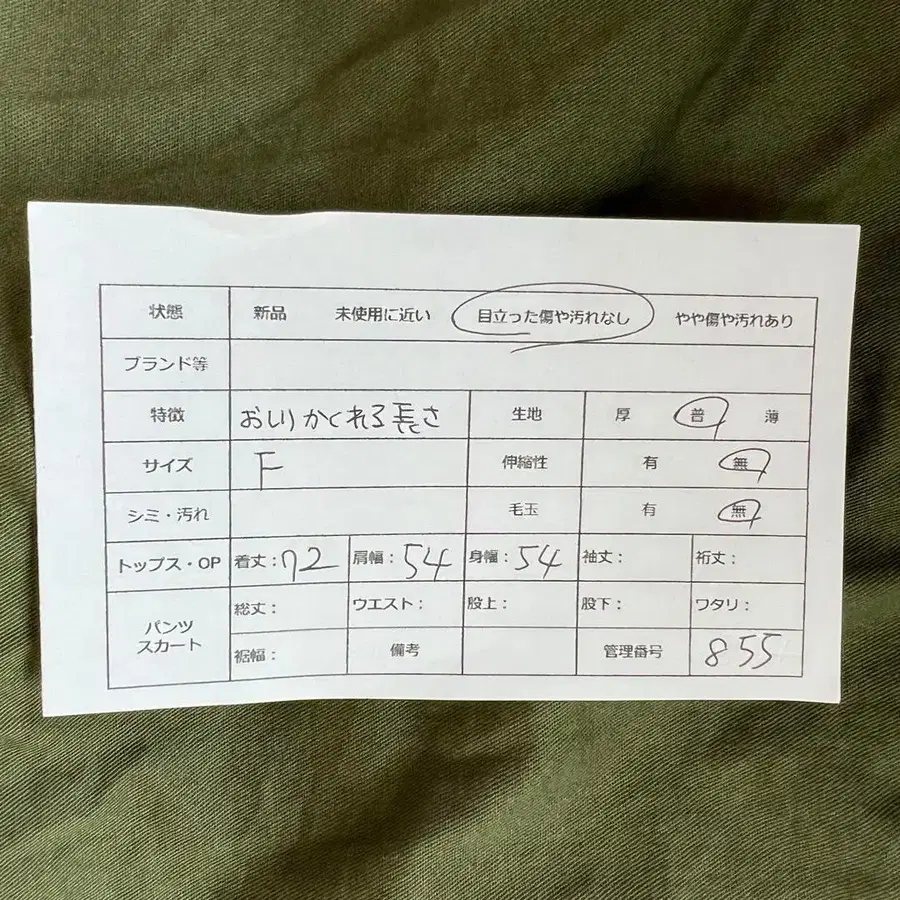 状態 新品 未使用に近い 目立った傷や汚れなし やや傷や汚れあり
ブランド等
特徴 おしりかくれる長さ 生地 厚 普 薄
サイズ F 伸縮性 有 無
シミ・汚れ 毛玉 有 無
トップス・OP 着丈：72 肩幅：54 身幅：54 袖丈： 裄丈：
パンツ スカート 総丈： ウエスト： 股上： 股下： ワタリ：
裾幅： 備考 管理番号 855